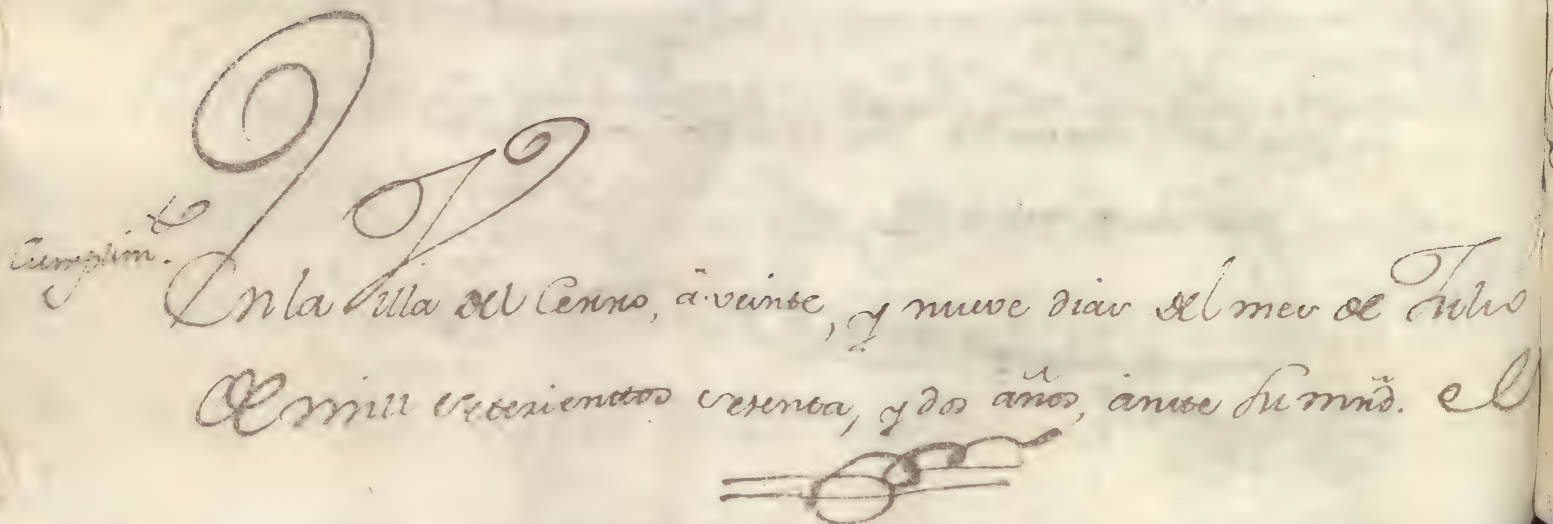 Cumplim.to
En la Villa del Cerro, â veinte, y nueve dias del mes de Julio
de mill setesienttos sesenta, y dos años, antte su mrd. el